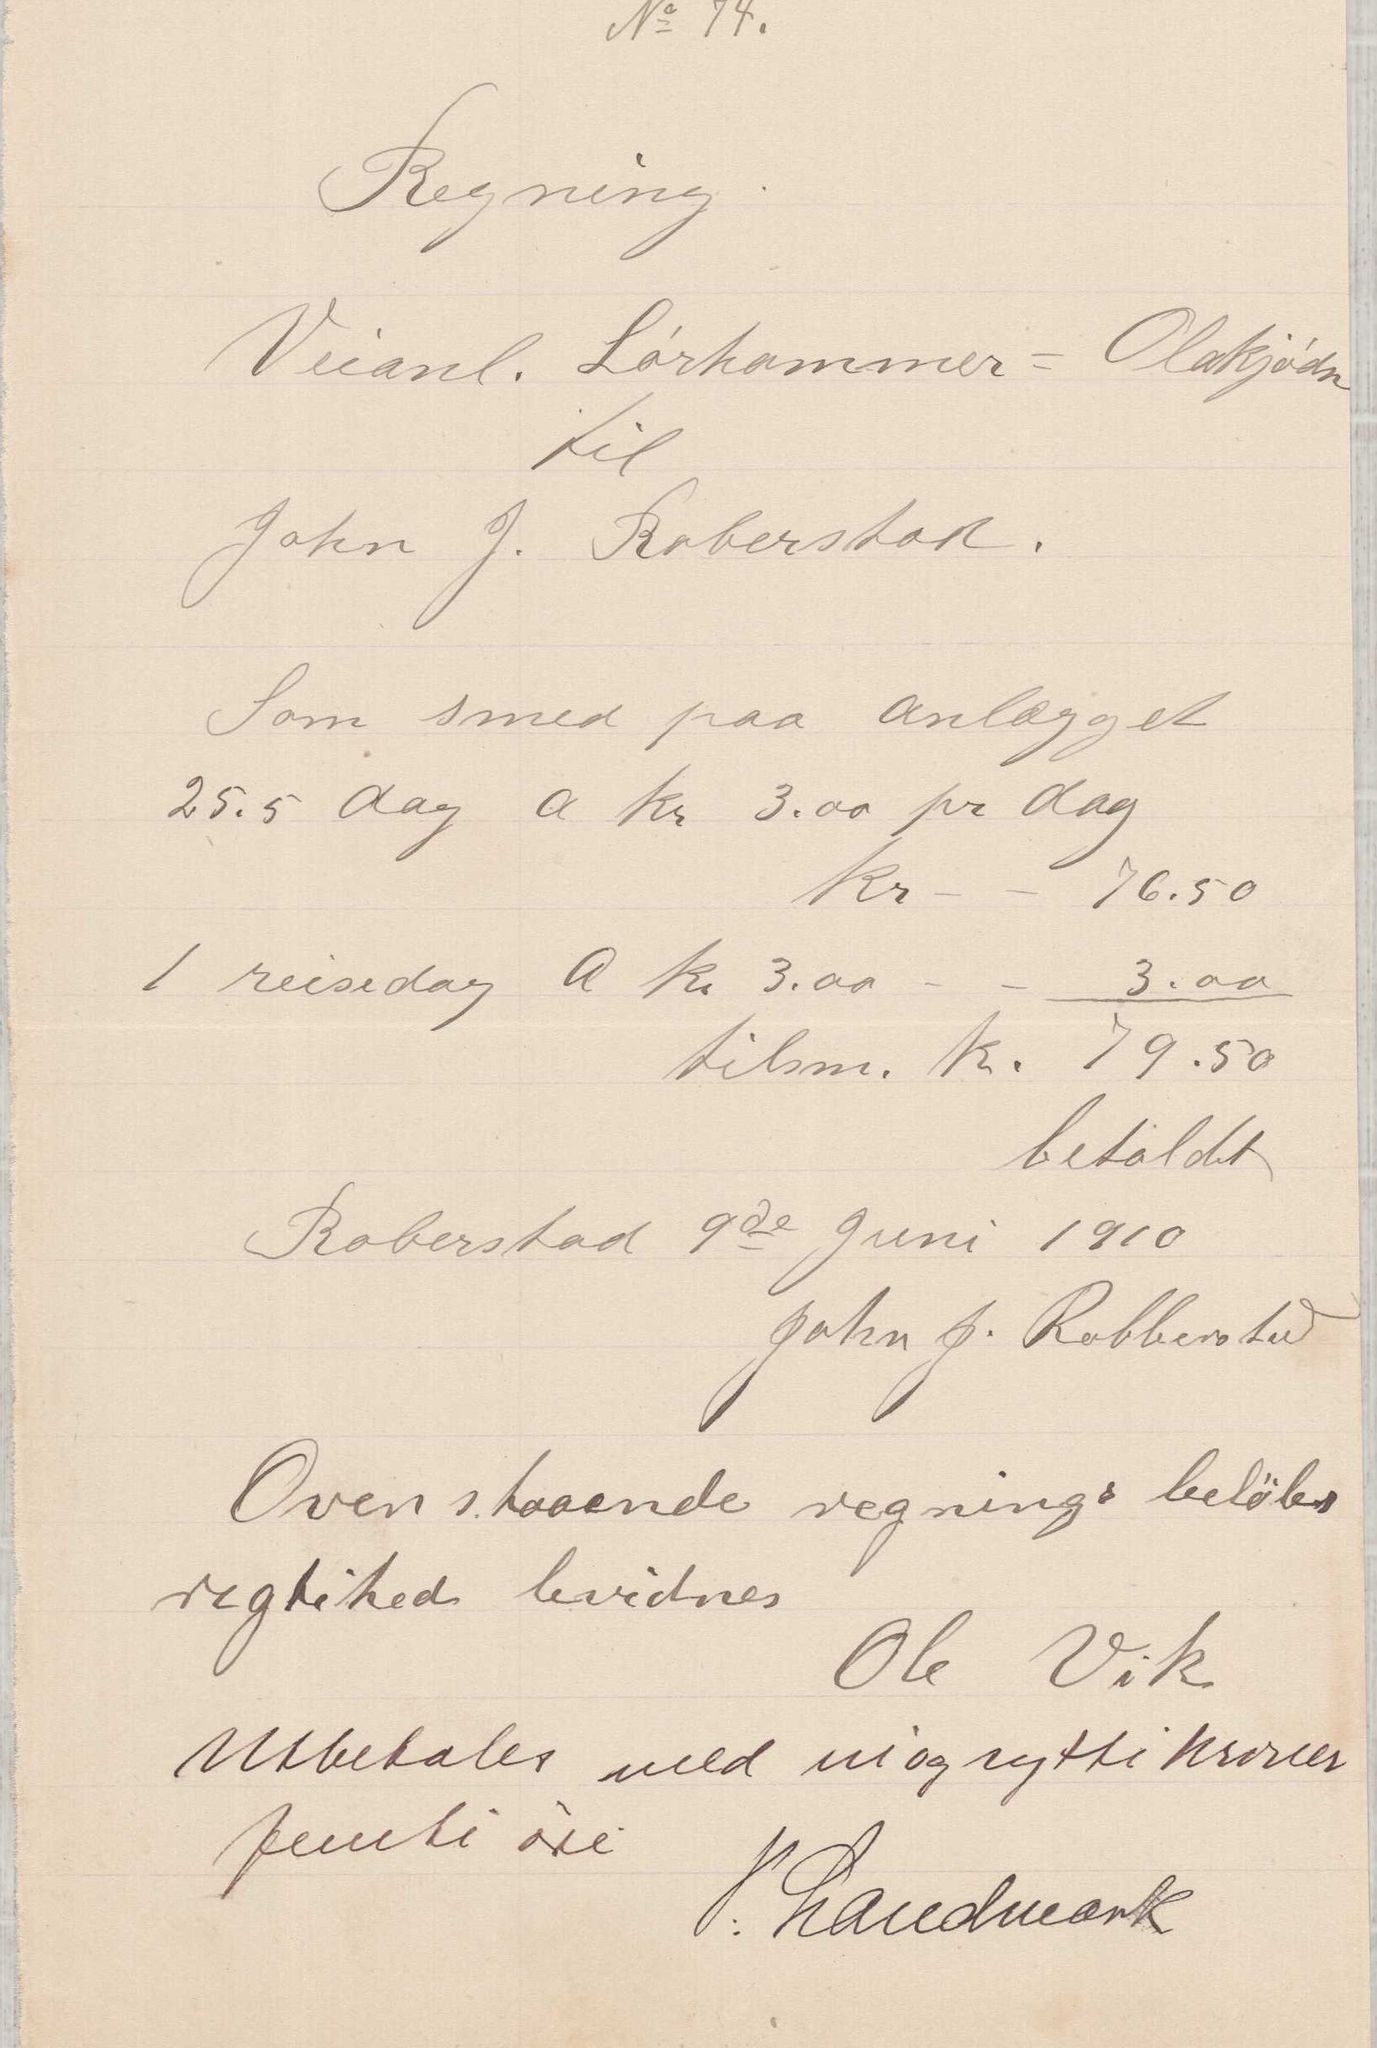 No 74.
Regning.
Veianl. Lórhammer = Olakjódn
til
John J. Roberstad.
Som smed paa anlægget
25.5 dag a kr 3.00 pr dag
kr - - 76.50
1 reisedag a kr 3.00 - - 3.00
tilsm. kr. 79.50
betaldt
Roberstad 9de Juni 1910
John J. Robberstad
Ovenstaaende regnings belöbs
regtihed bevidnes
Ole Vik
Utbetales med niogsytti kroner
femti öre
Landmark